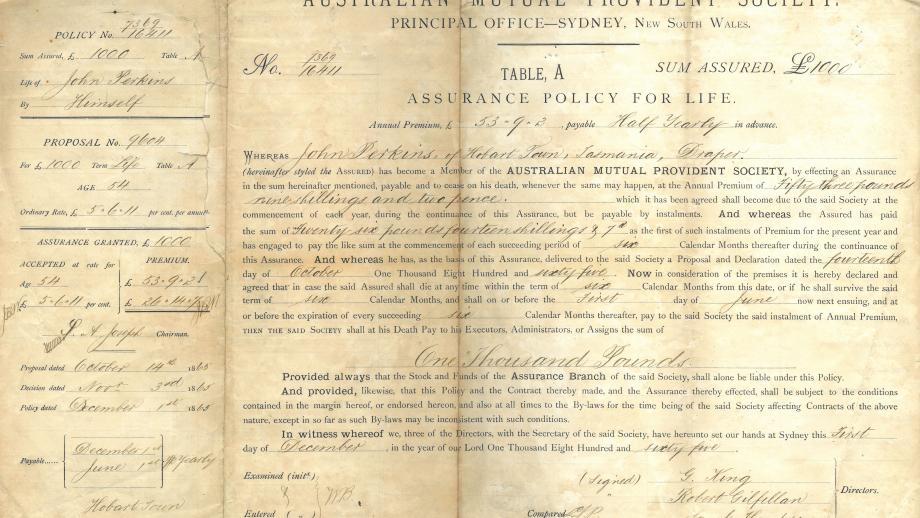 AUSTRALIAN MUTUAL PROVIDENT SOCIETY.
PRINCIPAL OFFICE—SYDNEY, NEW SOUTH WALES.
No. 7369
16411
TABLE, A
SUM ASSURED, £1000
ASSURANCE POLICY FOR LIFE.
Annual Premium, £ 53-9-2, payable Half Yearly in advance.
WHEREAS John Perkins, of Hobart Town, Tasmania, Draper.
(hereinafter styled the ASSURED) has become a Member of the AUSTRALIAN MUTUAL PROVIDENT SOCIETY, by effecting an Assurance
in the sum hereinafter mentioned, payable and to cease on his death, whenever the same may happen, at the Annual Premium of Fifty three pounds
nine shillings and two pence. which it has been agreed shall become due to the said Society at the
commencement of each year, during the continuance of this Assurance, but be payable by instalments. And whereas the Assured has paid
the sum of Twenty six pounds fourteen shillings & 7d as the first of such instalments of Premium for the present year and
has engaged to pay the like sum at the commencement of each succeeding period of six Calendar Months thereafter during the continuance of
this Assurance. And whereas he has, as the basis of this Assurance, delivered to the said Society a Proposal and Declaration dated the fourteenth
day of October One Thousand Eight Hundred and sixty five. Now in consideration of the premises it is hereby declared and
agreed that in case the said Assured shall die at any time within the term of six Calendar Months from this date, or if he shall survive the said
term of six Calendar Months, and shall on or before the First day of June now next ensuing, and at
or before the expiration of every succeeding six Calendar Months thereafter, pay to the said Society the said instalment of Annual Premium,
THEN THE SAID SOCIETY shall at his Death Pay to his Executors, Administrators, or Assigns the sum of
One Thousand Pounds.
Provided always that the Stock and Funds of the Assurance Branch of the said Society, shall alone be liable under this Policy.
And provided, likewise, that this Policy and the Contract thereby made, and the Assurance thereby effected, shall be subject to the conditions
contained in the margin hereof, or endorsed hereon, and also at all times to the By-laws for the time being of the said Society affecting Contracts of the above
nature, except in so far as such By-laws may be inconsistent with such conditions.
In witness whereof we, three of the Directors, with the Secretary of the said Society, have hereunto set our hands at Sydney this First
day of December, in the year of our Lord One Thousand Eight Hundred and sixty five.
Examined (initls.) WB
(Signed) G. King
" Robert Gilfillan
Directors.
Entered "
Compared
POLICY No. 7369
16411
Sum Assured, £ 1000 Table A
Life of John Perkins
By Himself
PROPOSAL No. 9604
For £ 1000 Term Life Table A
AGE 54
Ordinary Rate, £ 5-6-11 per cent. per annum
ASSURANCE GRANTED, £ 1000
ACCEPTED at rate for
Age 54
£ 5-6-11 per cent.
PREMIUM.
£ 53-9-2
£ 26-14-7
S. A. Joseph Chairman.
Proposal dated October 14th 1865
Decision dated Novr 3rd 1865
Policy dated December 1st 1865
Payable...... December 1st
June 1st
½ Yearly
Hobart Town